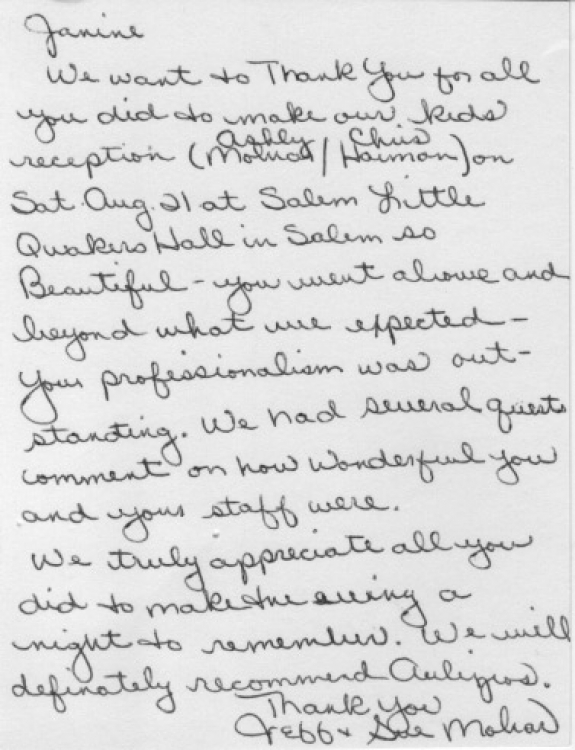 Janine
We want to Thank You for all
you did to make our kids'
Ashley Chris
reception (/Haiman) on
Sat. Aug. 21 at Salem Little
Quakers Hall in Salem so
Beautiful - you went above and
beyond what we expected -
Your professionalism was out-
standing. We had several guests
comment on how wonderful you
and your staff were.
We truly appreciate all you
did to make the evening a
night to remember. We will
definately recommend.
Thank You
Jeff & Sue